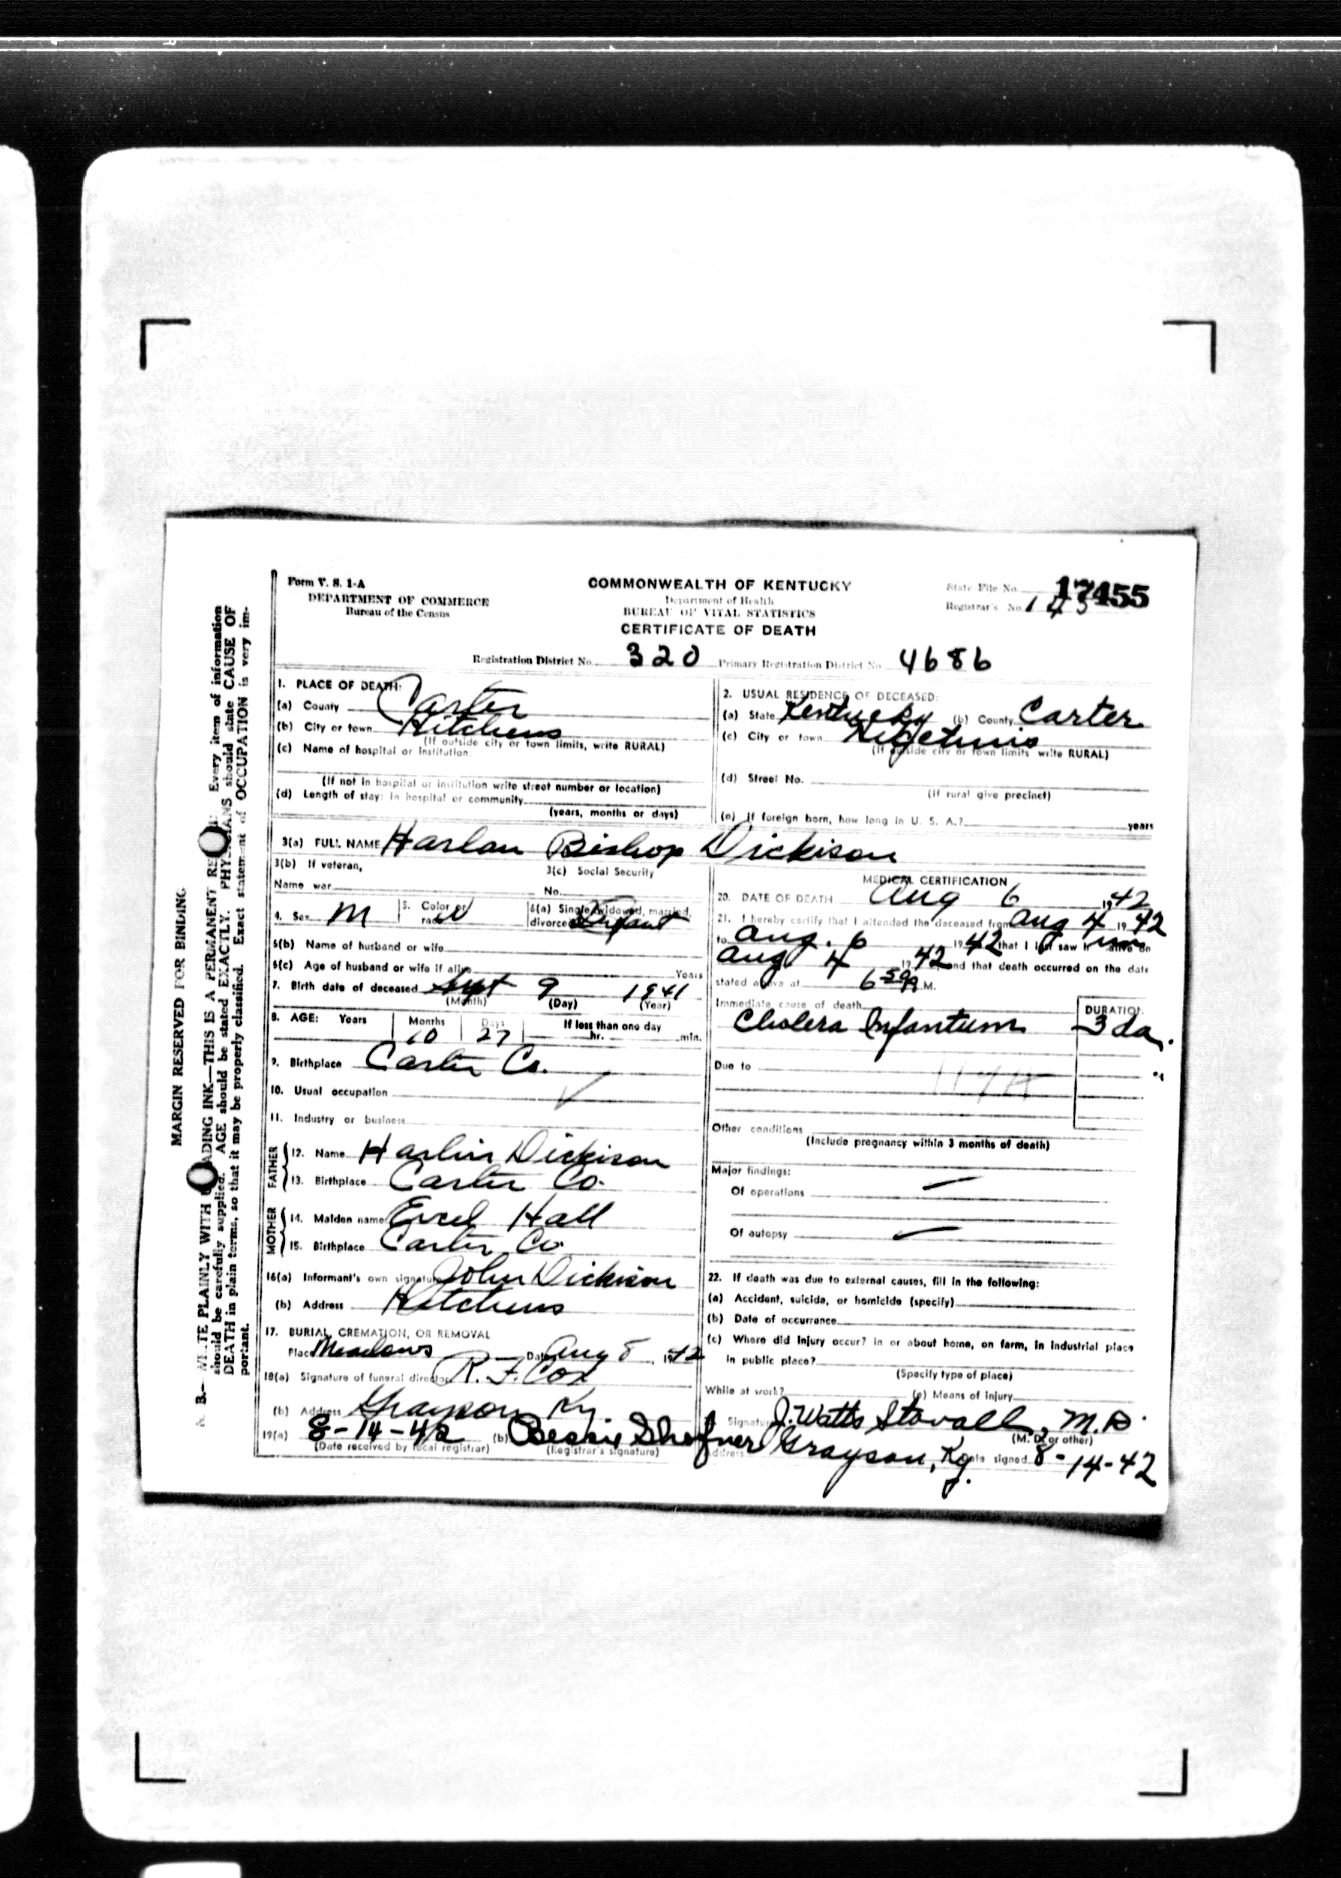 Form V. S. 1-A
DEPARTMENT OF COMMERCE
Bureau of the Census
COMMONWEALTH OF KENTUCKY
Department of Health
BUREAU OF VITAL STATISTICS
CERTIFICATE OF DEATH
State File No. 17455
Registrar's No. 143
Registration District No. 320 Primary Registration District No. 4686
1. PLACE OF DEATH:
(a) County Carter
(b) City or town Hitchens
(If outside city or town limits, write RURAL)
(c) Name of hospital or institution
(If not in hospital or institution write street number or location)
(d) Length of stay: In hospital or community
(years, months or days)
2. USUAL RESIDENCE OF DECEASED:
(a) State Kentucky (b) County Carter
(c) City or town
(If outside city or town limits write RURAL)
(d) Street No.
(If rural give precinct)
(e) If foreign born, how long in U. S. A.? years
3(a) FULL NAME Harlan Bishop Dickison
3(b) If veteran,
Name war
3(c) Social Security
No.
4. Sex M 5. Color or race W 6(a) Single, widowed, married, divorced Infant
6(b) Name of husband or wife
6(c) Age of husband or wife if alive Years
7. Birth date of deceased Sept 9 1941
(Month) (Day) (Year)
8. AGE: Years Months Days If less than one day
10 27 hr. min.
9. Birthplace Carter Co.
10. Usual occupation
11. Industry or business
FATHER
12. Name Harlin Dickison
13. Birthplace Carter Co.
MOTHER
14. Maiden name Hall
15. Birthplace Carter Co
16(a) Informant's own signature John Dickison
(b) Address Hitchens
17. BURIAL, CREMATION, OR REMOVAL
Place Meadows Date Aug 8, 1942
18(a) Signature of funeral director R. F. Cox
(b) Address Grayson Ky.
19(a) 8-14-42 (b) Bessie Shafner
(Date received by local registrar) (Registrar's signature)
MEDICAL CERTIFICATION
20. DATE OF DEATH Aug 6 1942
21. I hereby certify that I attended the deceased from Aug 4, 1942
to Aug. 6 1942 that I last saw him alive on
Aug. 4 1942 and that death occurred on the date
stated above at M.
Immediate cause of death
Cholera Infantum
DURATION
3 da.
Due to
Other conditions
(Include pregnancy within 3 months of death)
Major findings:
Of operations —
Of autopsy —
22. If death was due to external causes, fill in the following:
(a) Accident, suicide, or homicide (specify)
(b) Date of occurrence
(c) Where did injury occur? in or about home, on farm, in industrial place
in public place?
(Specify type of place)
While at work? (e) Means of injury
Signature J. Watts Stovall, M.D.
(M. D. or other)
Address Grayson, Ky. Date signed 8-14-42
MARGIN RESERVED FOR BINDING
N. B.—WRITE PLAINLY WITH UNFADING INK—THIS IS A PERMANENT RECORD. Every item of information
should be carefully supplied. AGE should be stated EXACTLY. PHYSICIANS should state CAUSE OF
DEATH in plain terms, so that it may be properly classified. Exact statement of OCCUPATION is very im-
portant.